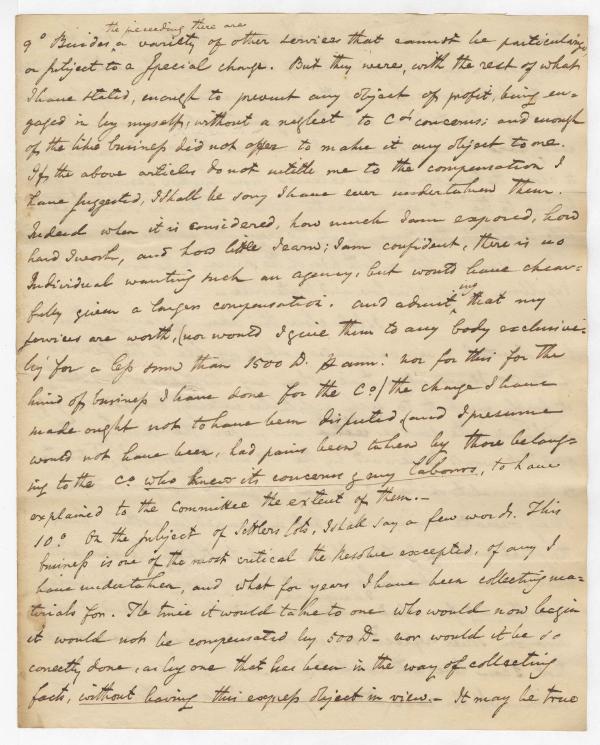 the preceeding there are
9° Besides, a variety of other services that cannot be particularized
or subject to a Special charge. But they were, with the rest of what
I have stated, enough to prevent any object of profit, being en=
gaged in by myself, without a neglect to Cos concerns; and enough
of the like business did not offer to make it any object to me.
If the above articles do not intitle me to the compensation I
have suggested, I shall be sorry I have ever undertaken them.
Indeed when it is considered, how much I am exposed, how
hard I work, and how little I earn; I am confident, there is no
Individual wanting such an agency, but would have chear=
fully given a larger compensation. and admitting that my
services are worth, (nor would I give them to any body exclusive=
ly for a less sum than 1500 D. p ann: nor for this for the
kind of business I have done for the Co) the charge I have
made ought not to have been disputed (and I presume
would not have been, had pains been taken by those belong=
ing to the Co who knew its concerns & my labours, to have
explained to the Committee the extent of them.—
10° On the subject of Settlers Lots, I shall say a few words. This
business is one of the most critical the Resolve excepted, of any I
have undertaken, and what for years I have been collecting ma=
terials for. The time it would take to one who would now begin
it would not be compensated by 500 D— nor would it be so
correctly done, as by one that has been in the way of collecting
facts, without having this express object in view.— It may be true